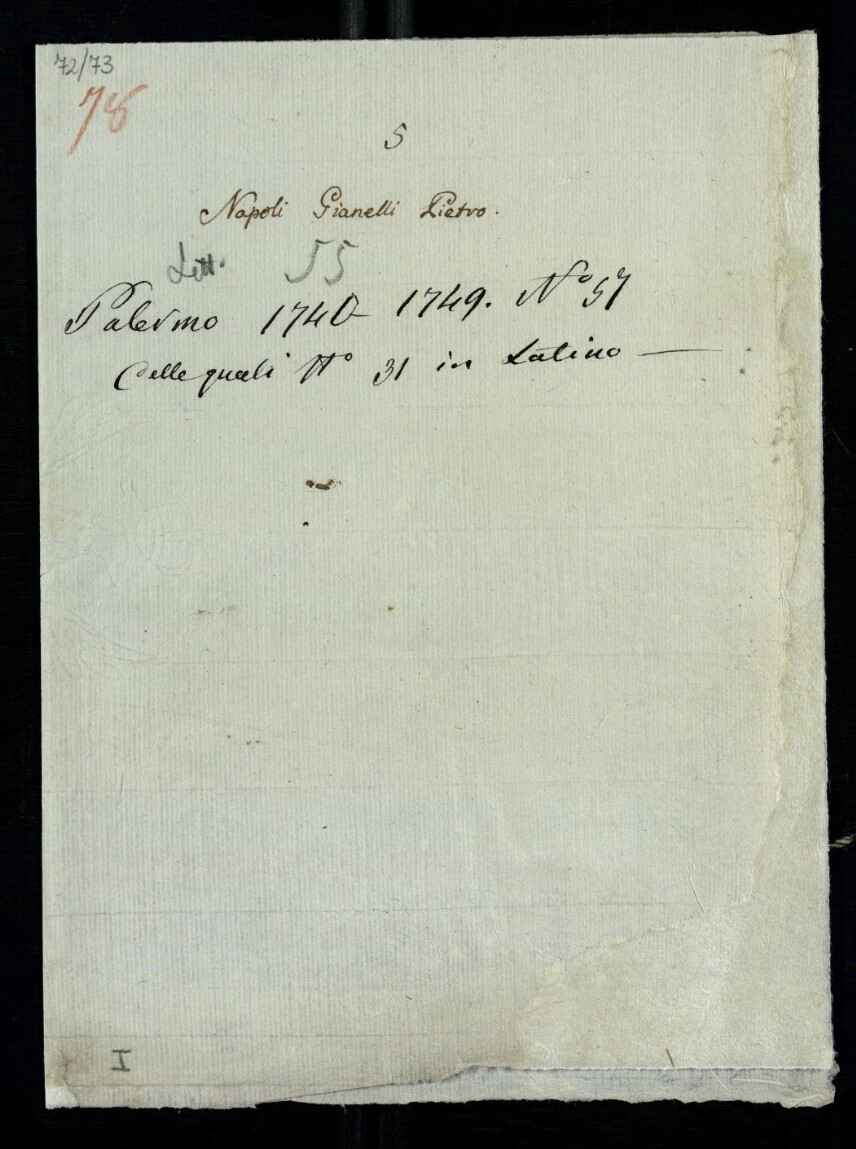 72/73
78
5
Napoli Gianelli Pietro.
Lett. 55
Palermo 1740 - 1749. N° 57
delle quali N° 31 in Latino —
I